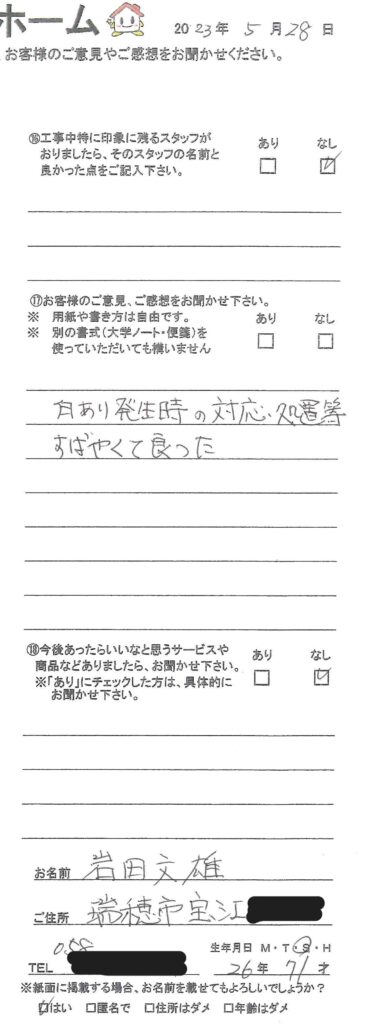 ホーム
2023年 5月28日
お客様のご意見やご感想をお聞かせください。
⑯工事中特に印象に残るスタッフが
おりましたら、そのスタッフの名前と
良かった点をご記入下さい。
あり なし
□ ☑
⑰お客様のご意見、ご感想をお聞かせ下さい。
※ 用紙や書き方は自由です。
※ 別の書式(大学ノート・便箋)を
使っていただいても構いません
あり なし
□ □
白あり発生時の対応、処置等
すばやくて良った
⑱今後あったらいいなと思うサービスや
商品などありましたら、お聞かせ下さい。
※「あり」にチェックした方は、具体的に
お聞かせ下さい。
あり なし
□ ☑
お名前 岩田文雄
ご住所 瑞穂市宝江
TEL 058
生年月日 M・T・S・H
26年 71才
※紙面に掲載する場合、お名前を載せてもよろしいでしょうか?
☑はい □匿名で □住所はダメ □年齢はダメ